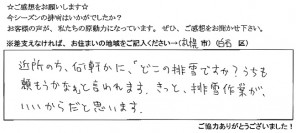 ☆ご感想をお願いします☆
今シーズンの排雪はいかがでしたか？
お客様の声が、私たちの原動力になっています。ぜひ、ご感想をお聞かせ下さい。
※差支えなければ、お住まいの地域をご記入ください→(札幌 市) (白石 区)
近所の方、何軒かに、「どこの排雪ですか？うちも
頼もうかなぁ」と言われます。きっと、排雪作業が、
いいからだと思います。
ご協力ありがとうございました！